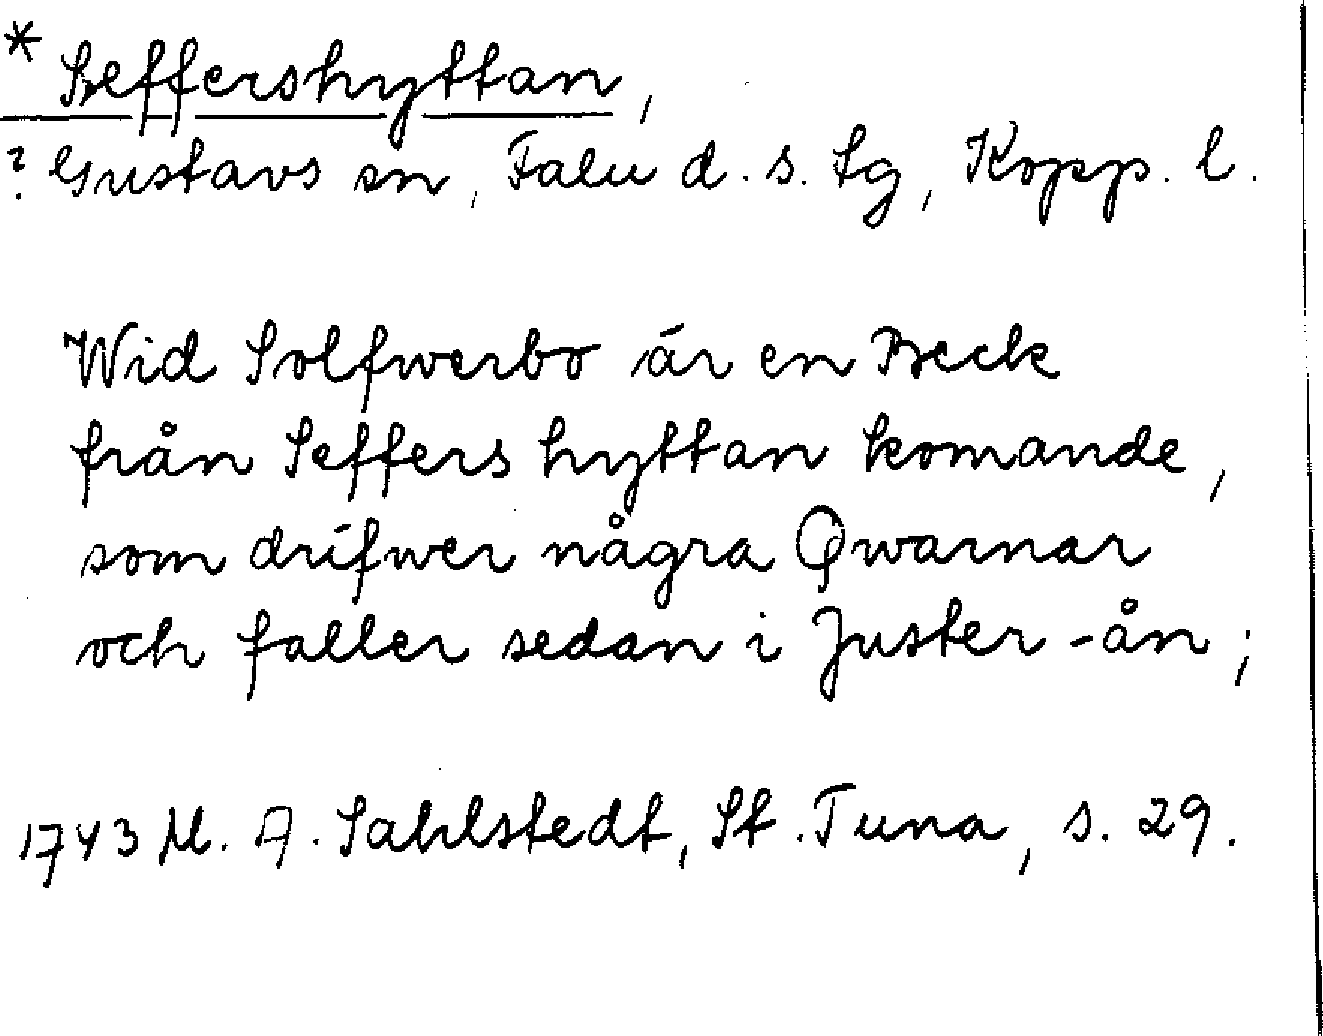 * Seffershyttan,
? Gustavs sn, Falu d. s. tg, Kopp. l.
Wid Solfwerbo är en Beck
från Seffers hyttan komande,
som drifwer några Qwarnar
och faller sedan i Juster-ån;
1743 M. A. Sahlstedt, St. Tuna, s. 29.